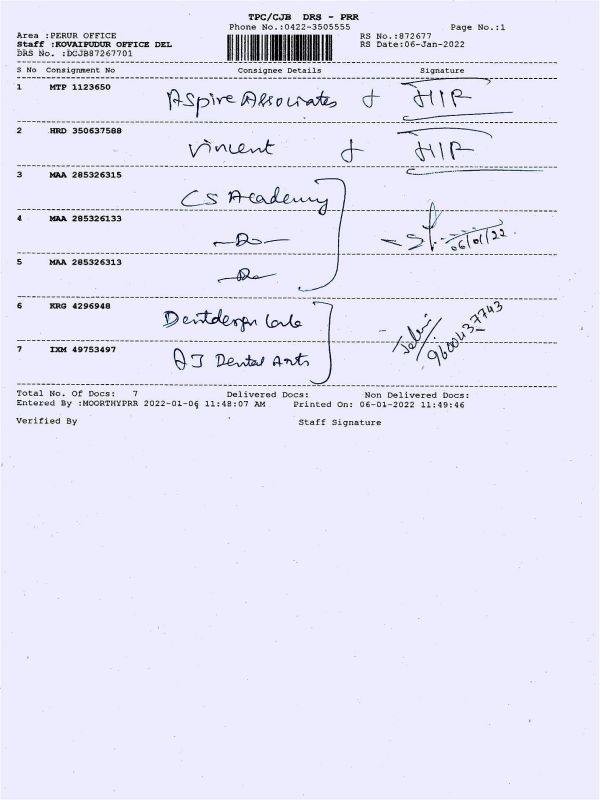 TPC/CJB DRS - PRR
Phone No.:0422-3505555 Page No.:1
Area :PERUR OFFICE RS No.:872677
Staff :KOVAIPUDUR OFFICE DEL RS Date:06-Jan-2022
DRS No. :DCJB87267701
S No Consignment No Consignee Details Signature
1 MTP 1123650 Aspire Associates
2 HRD 350637588 Vincent
3 MAA 285326315 CS Academy
4 MAA 285326133 -Do- 06/01/22
5 MAA 285326313 -Do-
6 KRG 4296948
7 IXM 49753497 AJ Dental Arts 9600437743
Total No. Of Docs: 7 Delivered Docs: Non Delivered Docs:
Entered By :MOORTHYPRR 2022-01-06 11:48:07 AM Printed On: 06-01-2022 11:49:46
Verified By Staff Signature